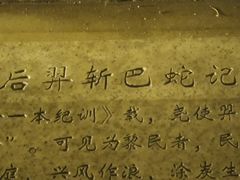 后羿斩巴蛇记
一本纪训》载，尧使羿
”。可见为黎民者，民
庭，兴风作浪，涂炭生